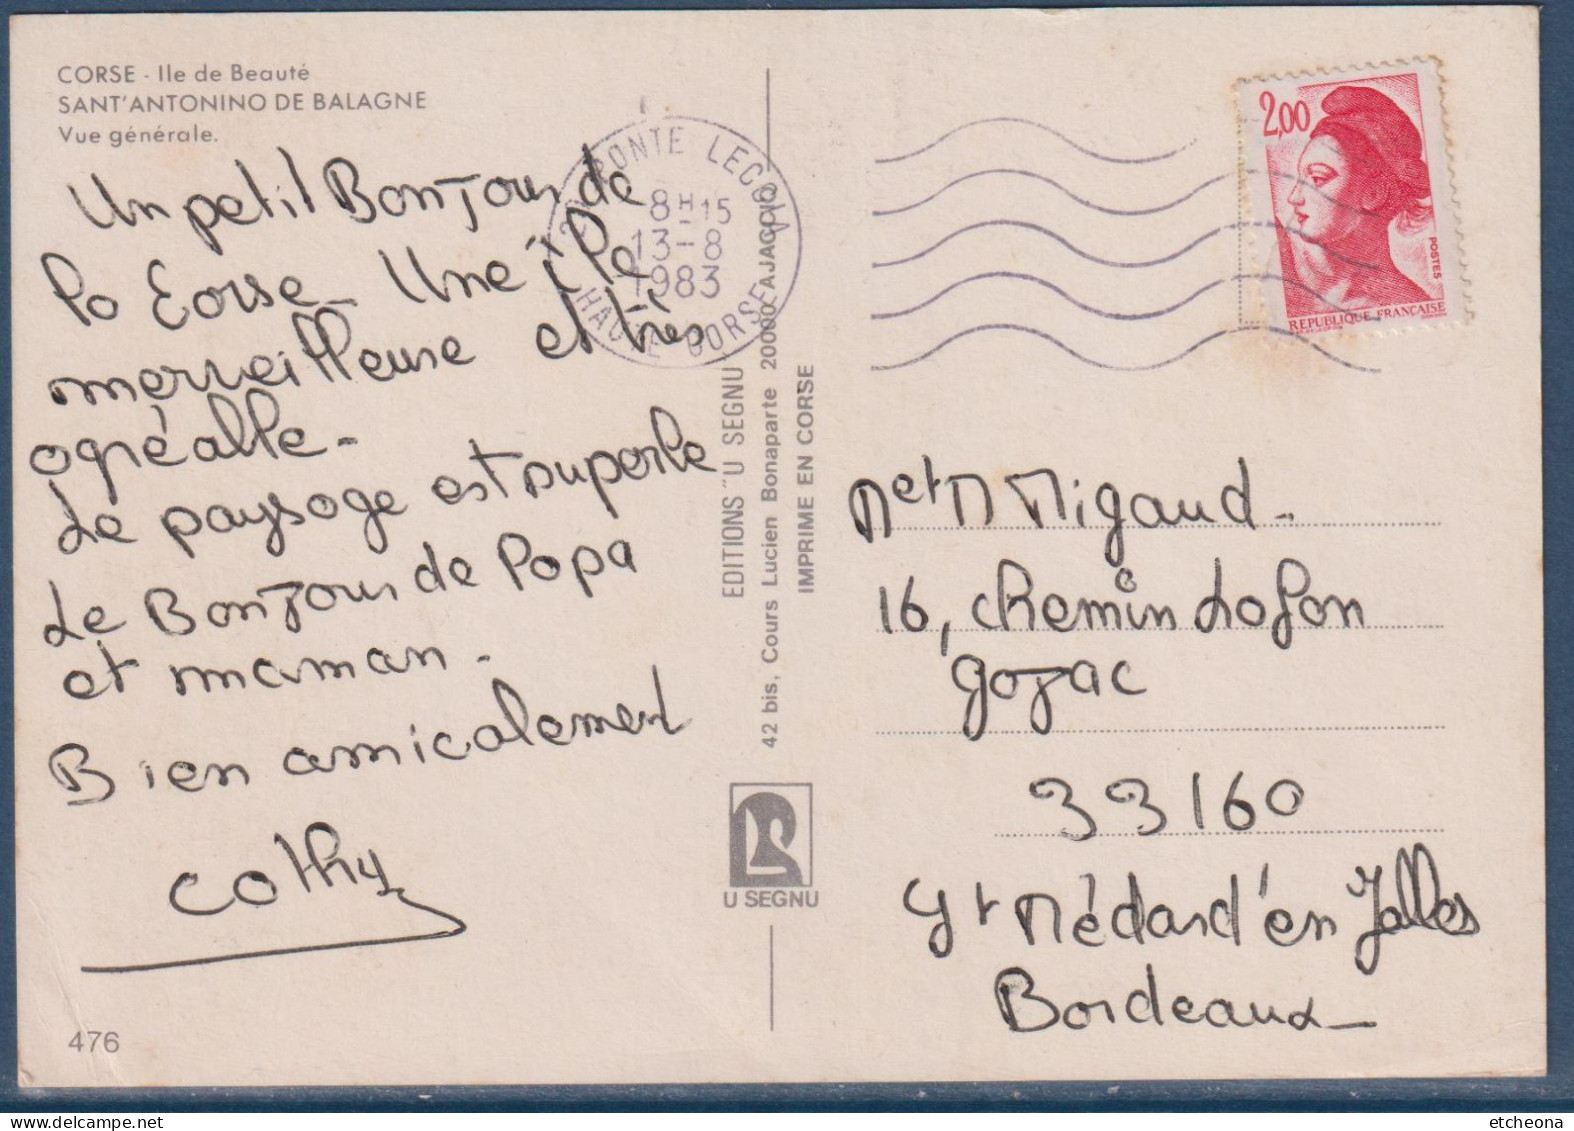 CORSE - Ile de Beauté
SANT'ANTONINO DE BALAGNE
Vue générale.
Un petit Bonjour de
la Corse - Une île
merveilleuse et très
agréable -
Le paysage est superbe
Le Bonjour de Papa
et maman -
Bien amicalement
Cathy
476
PONTE LECCIA
8H15
13-8
1983
HAUTE CORSE
EDITIONS "U SEGNU"
42 bis, Cours Lucien Bonaparte 20000 AJACCIO
IMPRIME EN CORSE
U SEGNU
2,00
POSTES
REPUBLIQUE FRANÇAISE
M et M Migaud -
16, chemin Lafon
Gajac
33160
St Médard en Jalles
Bordeaux -
etcheona